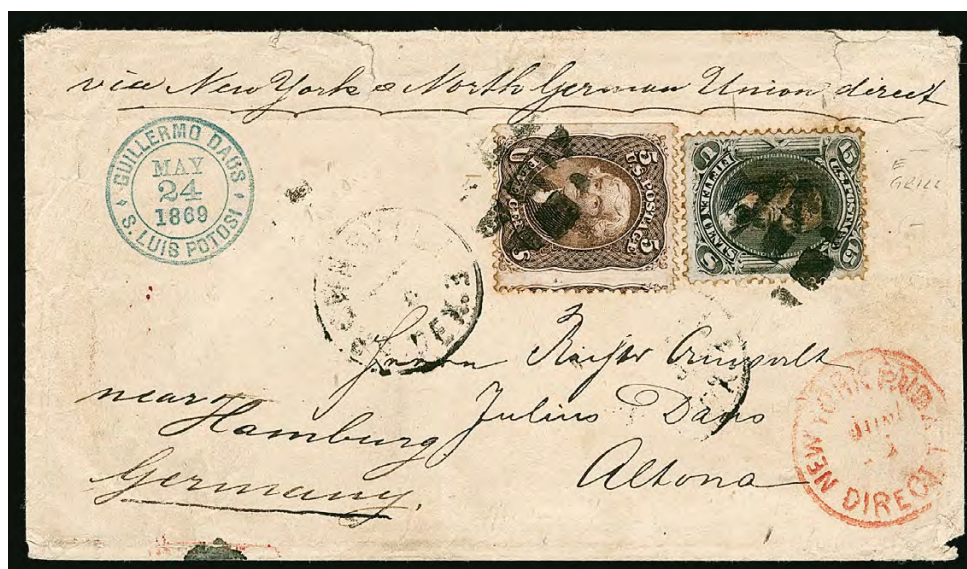 via New York & North German Union direct
GUILLERMO DAUS
MAY
24
1869
S. LUIS POTOSI
5 U.S. POSTAGE 5
U.S. POSTAGE 15
FIFTEEN CENTS
E
GRILL
TEX.
Herrn
Julius Daus
Altona
near
Hamburg
Germany.
NEW YORK PAID ALL
JUN
DIRECT